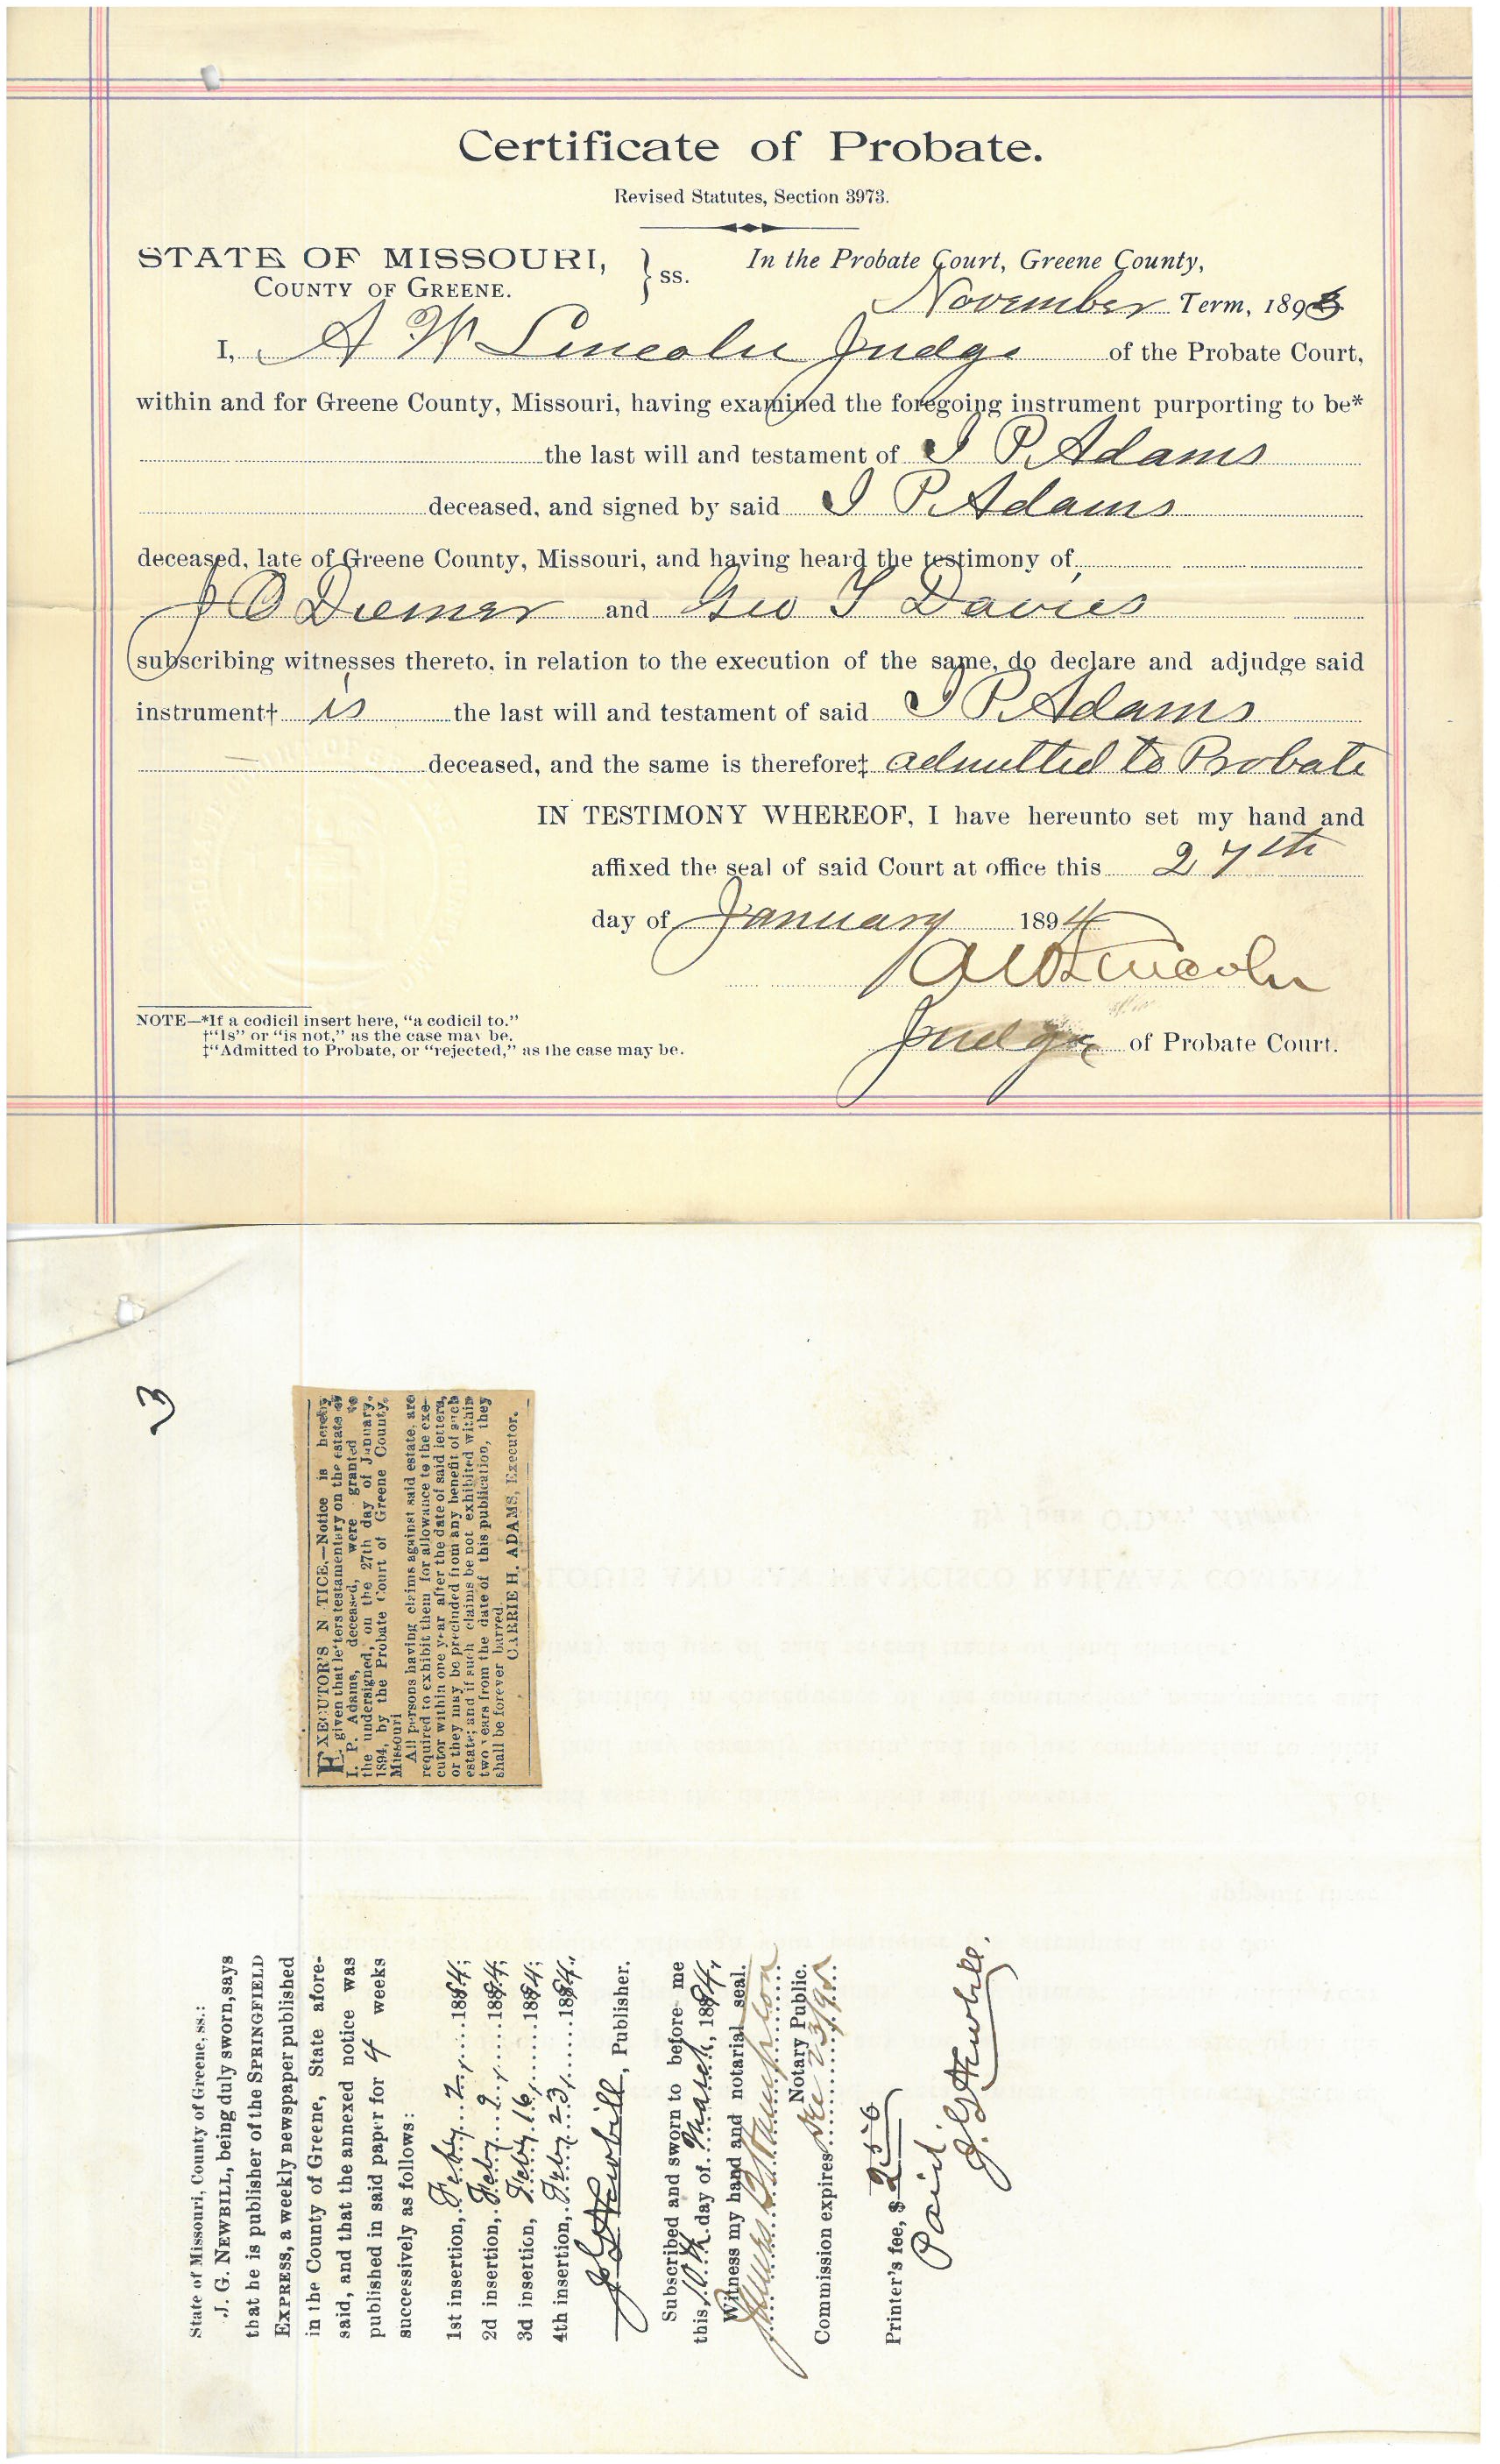 Certificate of Probate.
Revised Statutes, Section 3973.
STATE OF MISSOURI,
COUNTY OF GREENE.
} ss.
In the Probate Court, Greene County,
November Term, 1893
I, A W Lincoln Judge of the Probate Court,
within and for Greene County, Missouri, having examined the foregoing instrument purporting to be*
the last will and testament of I P. Adams
deceased, and signed by said I P. Adams
deceased, late of Greene County, Missouri, and having heard the testimony of
J C Diemer and Geo T Davies
subscribing witnesses thereto, in relation to the execution of the same, do declare and adjudge said
instrument† is the last will and testament of said I P. Adams
deceased, and the same is therefore‡ admitted to Probate
IN TESTIMONY WHEREOF, I have hereunto set my hand and
affixed the seal of said Court at office this 27th
day of January 1894
A W Lincoln
Judge of Probate Court.
NOTE—*If a codicil insert here, "a codicil to."
†"Is" or "is not," as the case may be.
‡"Admitted to Probate, or "rejected," as the case may be.
3
EXECUTOR'S N TICE.—Notice is hereby
given that letters testamentary on the estate of
I. P. Adams, deceased, were granted to
the undersigned, on the 27th day of January,
1894, by the Probate Court of Greene County,
Missouri
All persons having claims against said estate, are
required to exhibit them for allowance to the exe-
cutor within one year after the date of said letters,
or they may be precluded from any benefit of such
estate; and if such claims be not exhibited within
two years from the date of this publication, they
shall be forever barred.
CARRIE H. ADAMS, Executor.
State of Missouri, County of Greene, ss.:
J. G. NEWBILL, being duly sworn, says
that he is publisher of the SPRINGFIELD
EXPRESS, a weekly newspaper published
in the County of Greene, State afore-
said, and that the annexed notice was
published in said paper for 4 weeks
successively as follows:
1st insertion, Feby 2, 1894;
2d insertion, Feby 9, 1894;
3d insertion, Feby 16, 1894;
4th insertion, Feby 23, 1894.
J G Newbill, Publisher.
Subscribed and sworn to before me
this 10th day of March, 1894,
Witness my hand and notarial seal.
James
Notary Public.
Commission expires 23/95
Printer's fee, $ 2.50
Paid.
J. G. Newbill.